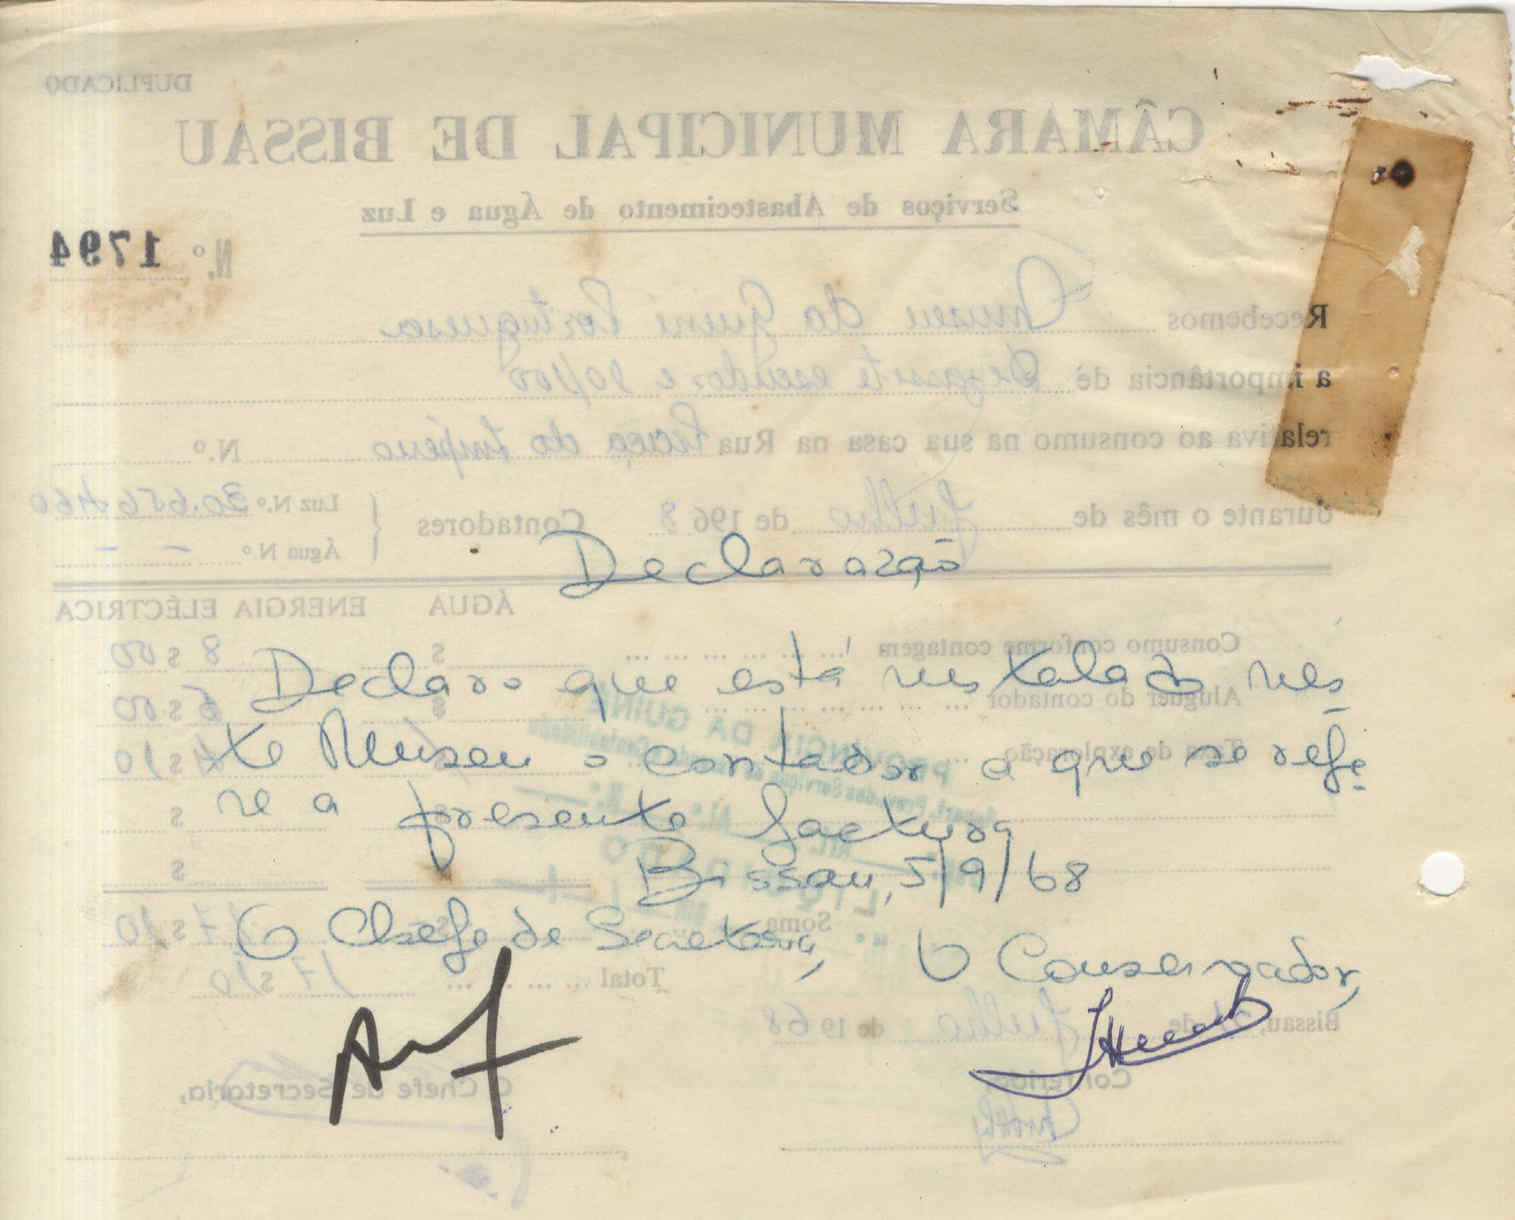 DUPLICADO
CÂMARA MUNICIPAL DE BISSAU
Serviços de Abastecimento de Água e Luz
N.º 1794
Recebemos Museu da Guiné Portuguesa
a importância de Dezassete escudos e 10/00
relativa ao consumo na sua casa na Rua Praça do Império N.º
durante o mês de Julho de 1968 Contadores
Luz N.º 30.656.460
Água N.º - -
Declaração
ÁGUA ENERGIA ELÉCTRICA
Consumo conforme contagem $ 8 $ 00
Declaro que está instalado nes-
Aluguer do contador $ 5 $ 00
PROVÍNCIA DA GUINÉ
te Museu o contador a que se refe-
Taxa de exploração 4 $ 10
re a presente factura
Bissau, 5/9/68
LIQUIDADO
O Chefe de Secretaria, O Conservador,
Soma 17 $ 10
Total 17 $ 10
Bissau, de Julho de 1968
Conferido
O Chefe de Secretaria,